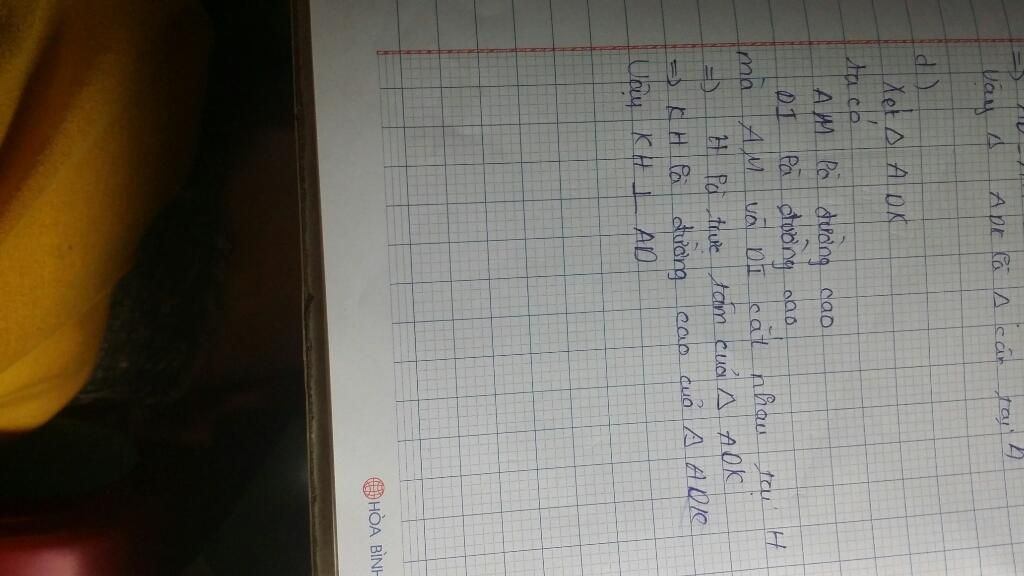 Vậy Δ ADK là Δ cân tại A
d)
Xét Δ ADK
ta có
AM là đường cao
DI là đường cao
mà AM và DI cắt nhau tại H
=) H là trực tâm của Δ ADK
=) KH là đường cao của Δ ADK
Vậy KH ⊥ AD
HÒA BÌNH